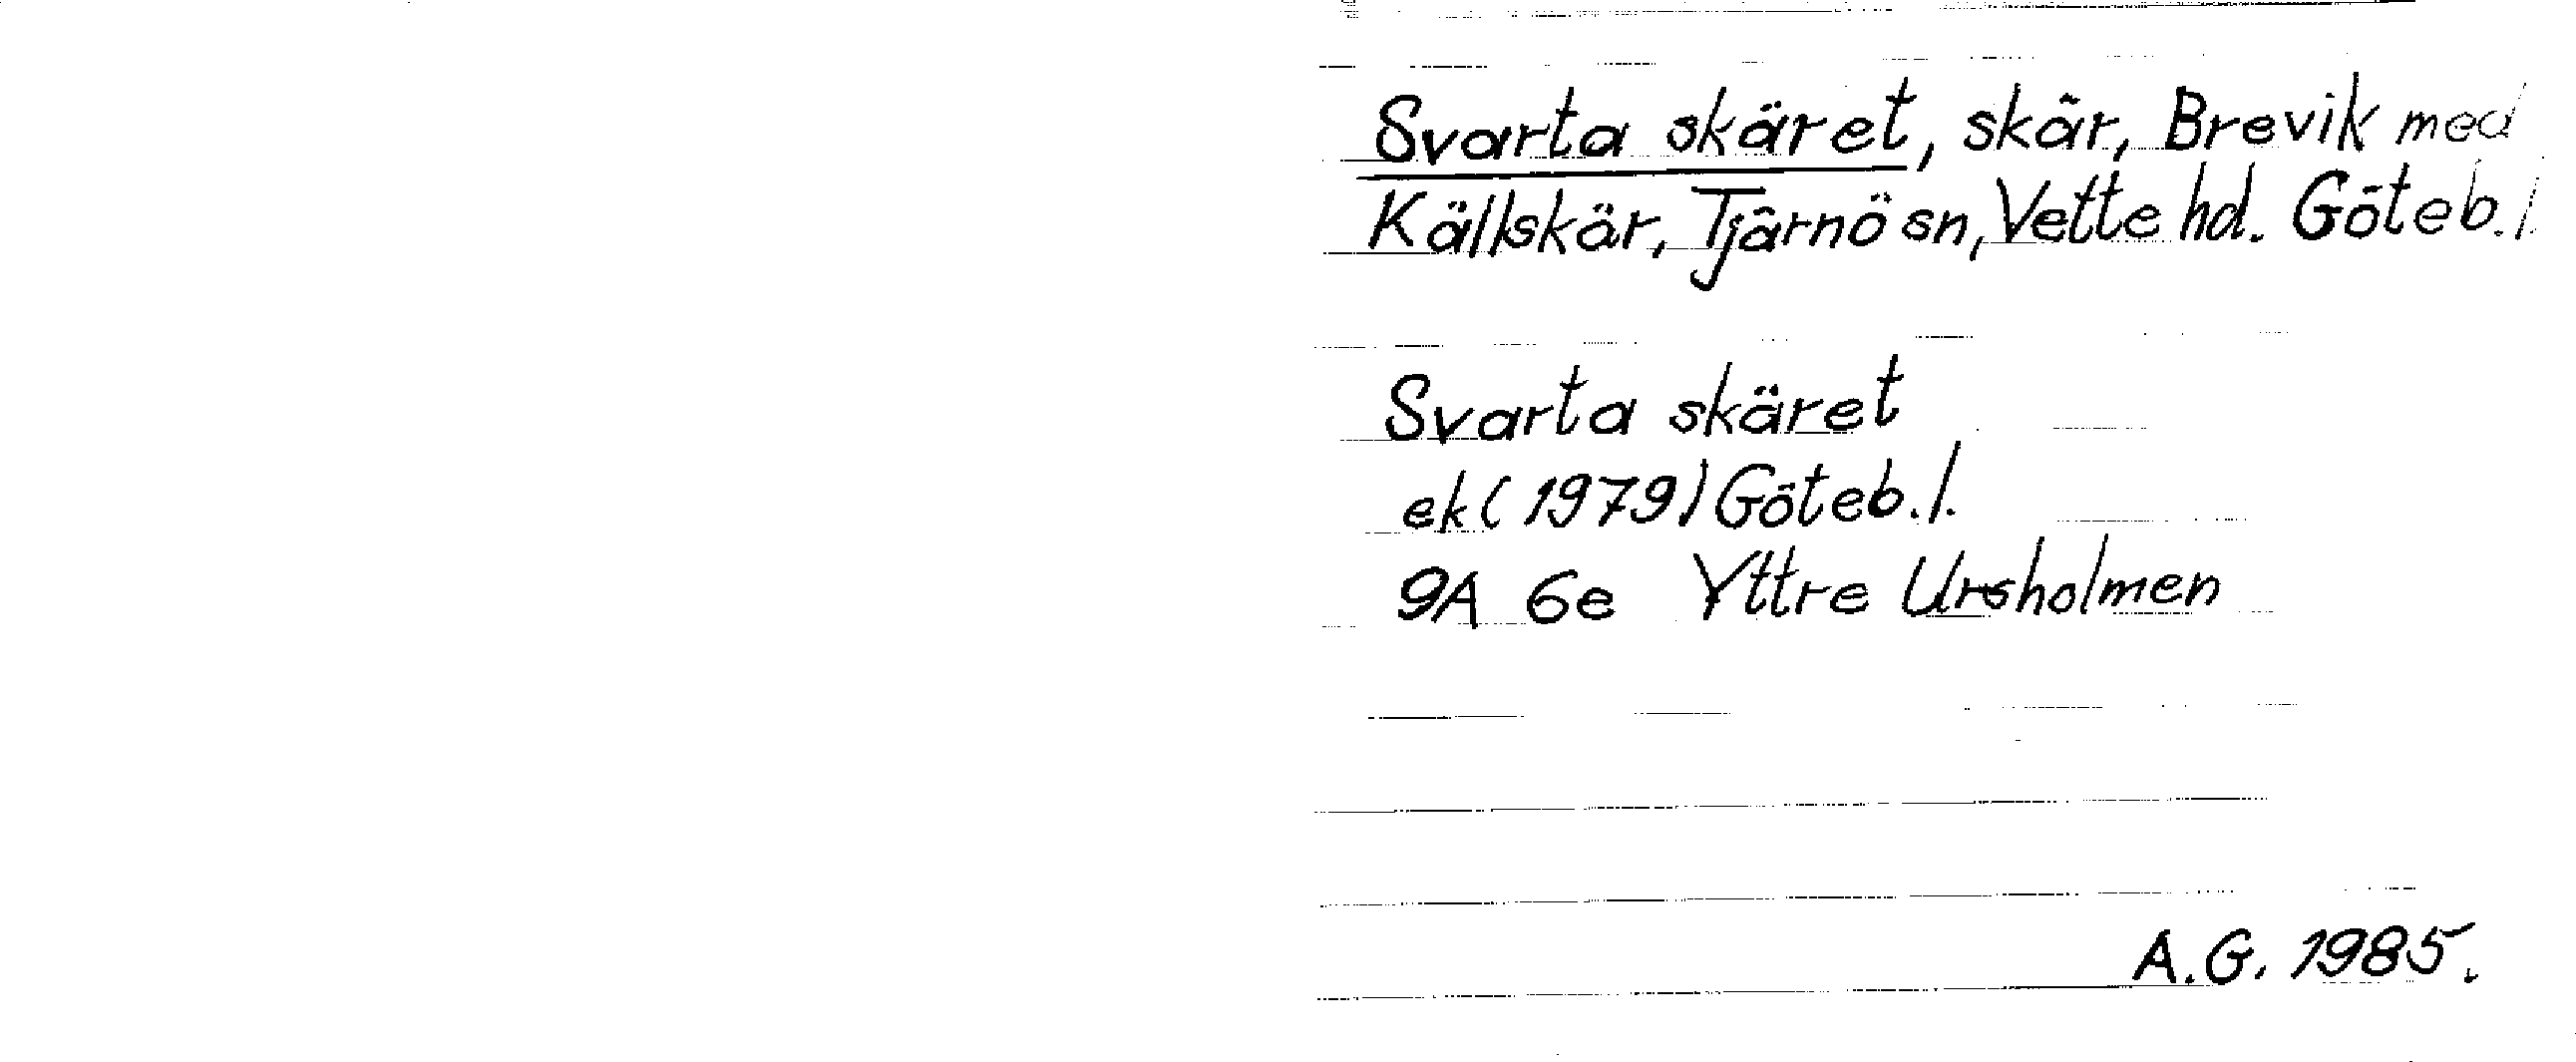 Svarta skäret, skär, Brevik med
Källskär, Tjärnö sn, Vette hd. Göteb. l
Svarta skäret
ek (1979) Göteb. l.
9A 6e Yttre Ursholmen
A.G. 1985.